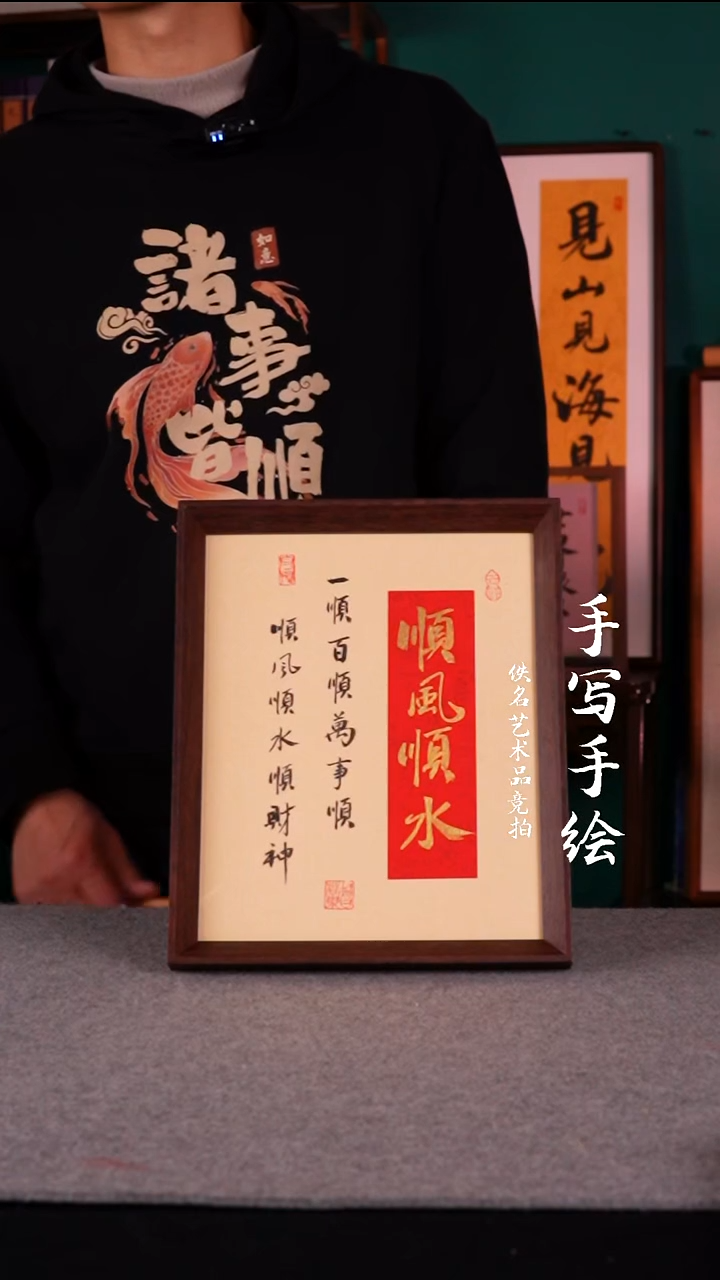 諸事皆順
如意
見山見海見
順風順水
一順百順萬事順
順风順水順財神
手写手绘
佚名艺术品竞拍